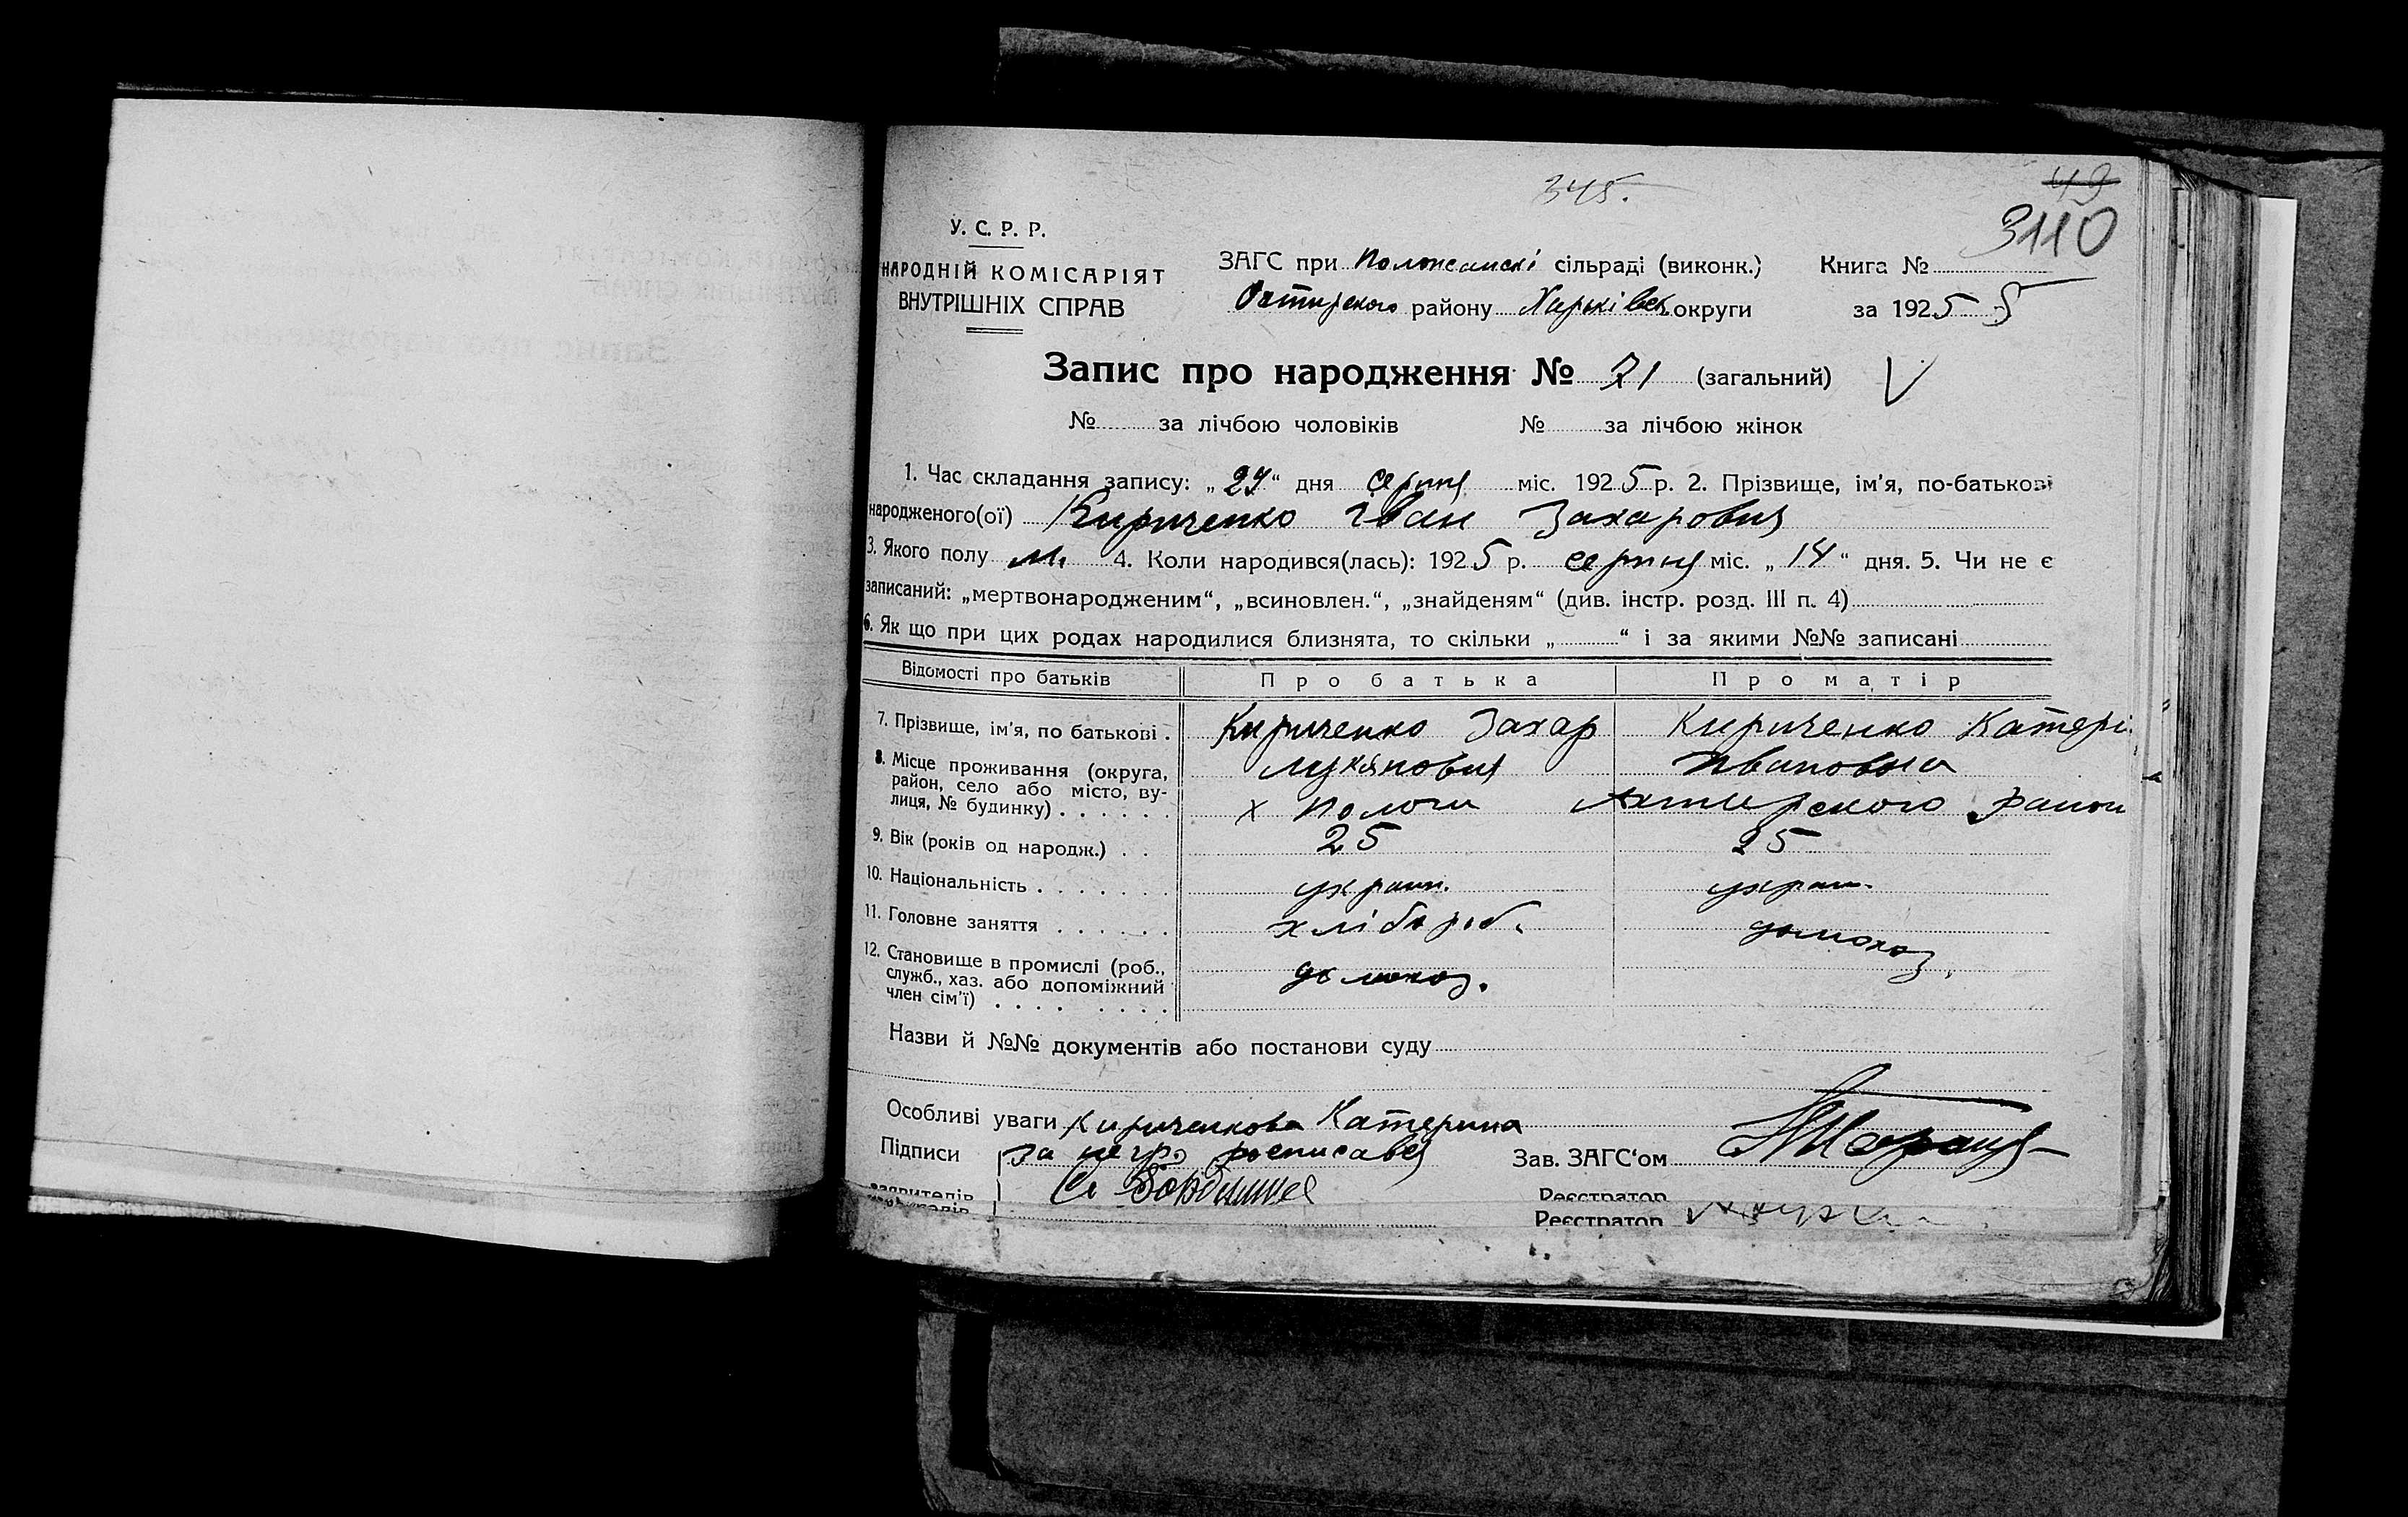 345.
49
3110
У. С. Р. Р.
НАРОДНІЙ КОМІСАРІЯТ
ВНУТРІШНІХ СПРАВ
ЗАГС при сільраді (виконк.) Книга №
Охтирского району Харківськ округи за 1925 5
Запис про народження № 21 (загальний) V
№ за лічбою чоловіків № за лічбою жінок
1. Час складання запису: „27“ дня серпня міс. 1925 р. 2. Прізвище, ім'я, по-батькові
народженого(ої) Кириченко Іван Захарович
3. Якого полу м. 4. Коли народився(лась): 1925 р. серпня міс. „14“ дня. 5. Чи не є
записаний: „мертвонародженим“, „всиновлен.“, „знайденям“ (див. інстр. розд. III п. 4)
6. Як що при цих родах народилися близнята, то скільки „ “ і за якими №№ записані
Відомості про батьків Про батька Про матір
7. Прізвище, ім'я, по батькові . Кириченко Захар Кириченко Катері
Лукянович Ивановна
8. Місце проживання (округа,
район, село або місто, ву-
лиця, № будинку) . . . . . . х Пологи Ахтирского район
9. Вік (років од народж.) . . 25 25
10. Національність . . . . . . . украин. украин.
11. Головне заняття . . . . . . хлібороб. домохоз.
12. Становище в промислі (роб.,
служб., хаз. або допоміжний
член сім'ї) . . . . . . . . домохоз.
Назви й №№ документів або постанови суду
Особливі уваги Кириченкова Катерина
Підписи за негр. росписався
Зав. ЗАГС'ом
заявителів
Реєстратор
Реєстратор